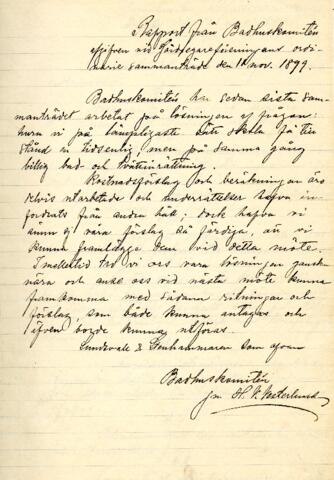 Rapport från Badhuskomitén
afgifven vid Gårdsegareföreningens ordi-
narie sammanträde den 11 nov. 1899.
Badhuskomitén har sedan sista sam-
manträdet arbetat på lösningen af frågan:
huru vi på lämpligaste sätt skola få till
stånd en tidsenlig men på samma gång
billig bad- och tvättinrättning
Kostnadsförslag och beräkningar äro
delvis utarbetade och underrättelser hafva in-
fordrats från andra håll; dock hafva vi
ännu ej våra förslag så färdiga, att vi
kunna framlägga dem vid detta möte.
Imellertid tro vi oss vara lösningen ganska
nära och anse oss vid nästa möte kunna
framkomma med sådana ritningar och
förslag, som både kunna antagas och
äfven borde kunna utföras.
Sundsvall & som ofvan
Badhuskomitén
gm